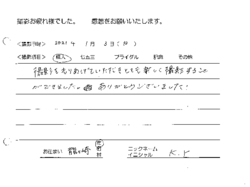 撮影お疲れ様でした。 感想をお願いいたします。
<撮影日時> 2021年 1月 3日(日)
<撮影項目> 成人 七五三 ブライダル 証明 その他
撮影をもりあげていただきとても楽しく撮影すること
ができました。 ありがとうございました!
お住まい 龍ヶ崎 市 ニックネーム
イニシャル K.K